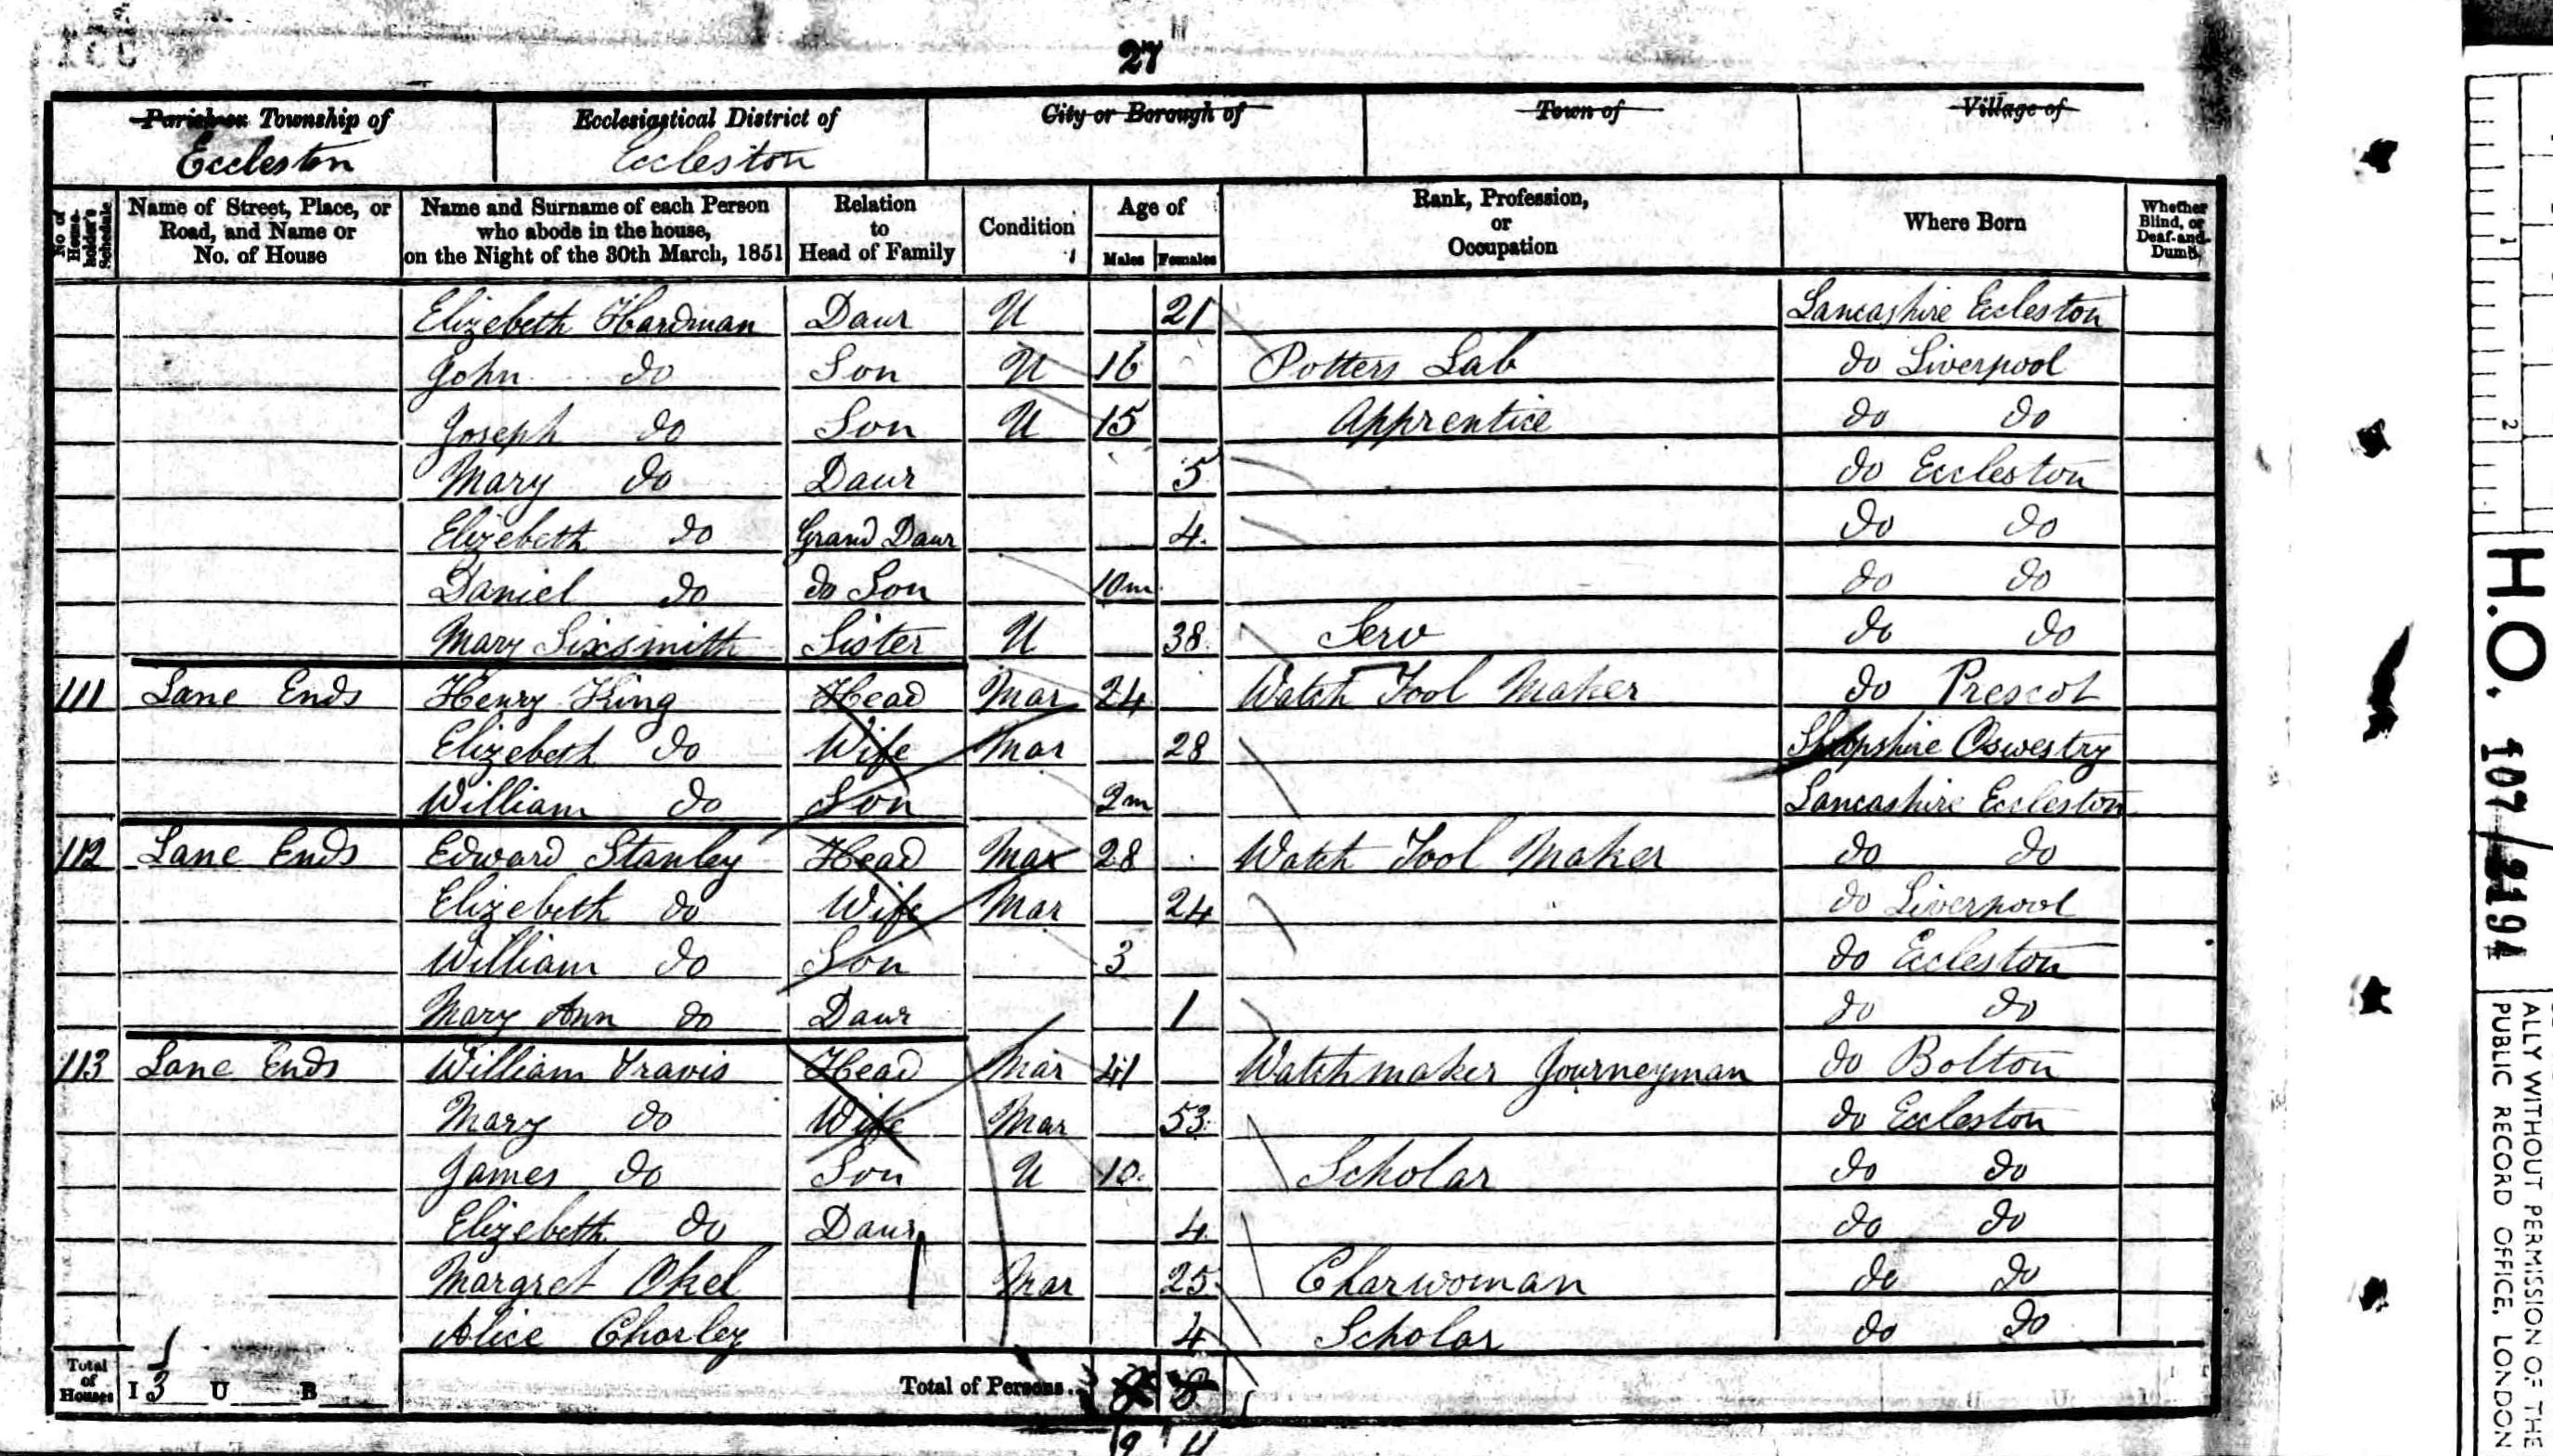 27
Parish or Township of Ecclesiastical District of City or Borough of Town of Village of
Eccleston Eccleston
No. of House-holder's Schedule Name of Street, Place, or Road, and Name or No. of House Name and Surname of each Person who abode in the house, on the Night of the 30th March, 1851 Relation to Head of Family Condition Age of Males Females Rank, Profession, or Occupation Where Born Whether Blind, or Deaf-and-Dumb
Elizebeth Hardman Daur U 21 Lancashire Eccleston
John do Son U 16 Potters Lab do Liverpool
Joseph do Son U 15 Apprentice do do
Mary do Daur 5 do Eccleston
Elizebeth do Grand Daur 4 do do
Daniel do do Son 10m do do
Mary Sixsmith Sister U 38 Serv do do
111 Lane Ends Henry King Head Mar 24 Watch Tool Maker do Prescot
Elizebeth do Wife Mar 28 Shropshire Oswestry
William do Son 2m Lancashire Eccleston
112 Lane Ends Edward Stanley Head Mar 28 Watch Tool Maker do do
Elizebeth do Wife Mar 24 do Liverpool
William do Son 3 do Eccleston
Mary Ann do Daur 1 do do
113 Lane Ends William Travis Head Mar 41 Watchmaker Journeyman do Bolton
Mary do Wife Mar 53 do Eccleston
James do Son U 10 Scholar do do
Elizebeth do Daur 4 do do
Margret Okel Mar 25 Charwoman do do
Alice Chorley 4 Scholar do do
Total of Houses I 3 U B Total of Persons
9 11
H.O. 107/2194
ALLY WITHOUT PERMISSION OF THE
PUBLIC RECORD OFFICE, LONDON